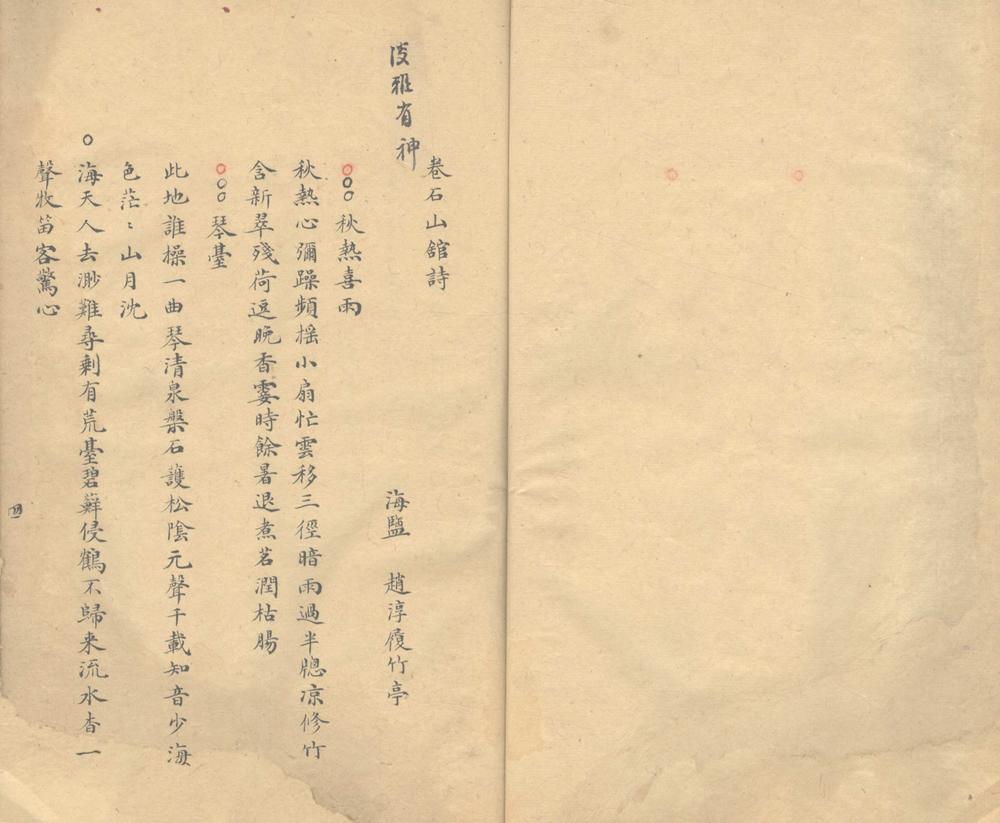 卷石山館詩
雅有神
海鹽　趙淳履竹亭
秋熱喜雨
秋熱心彌躁頻搖小扇忙雲移三徑暗雨過半牕凉修竹
含新翠殘荷逗晚香霎時餘暑退煮茗潤枯腸
琴臺
此地誰操一曲琴清泉槃石護松陰元聲千載知音少海
色茫〻山月沈
海天人去渺難尋剩有荒臺碧蘚侵鶴不歸来流水杳一
聲牧笛客驚心